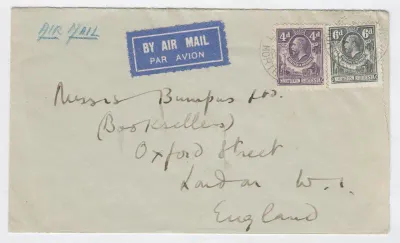 AIR MAIL
BY AIR MAIL
PAR AVION
4d 4d
NORTHERN RHODESIA
6d 6d
NORTHERN RHODESIA
Messrs Bumpus Ltd.
(Booksellers)
Oxford Street
London W.1.
England